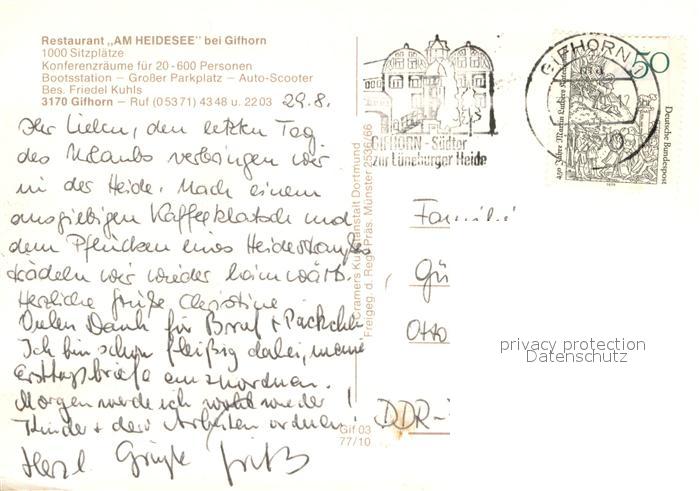 Restaurant „AM HEIDESEE" bei Gifhorn
1000 Sitzplätze
Konferenzräume für 20-600 Personen
Bootsstation – Großer Parkplatz – Auto-Scooter
Bes. Friedel Kuhls
3170 Gifhorn – Ruf (0 53 71) 43 48 u. 22 03
29.8.
Ihr Lieben, den letzten Tag
des Urlaubs verbringen wir
in der Heide. Nach einem
ausgiebigen Kaffeeklatsch und
dem Pflücken eines Heidestraußes
radeln wir wieder heimwärts.
Herzliche Grüße Christine
Vielen Dank für Brief + Päckchen
Ich bin schon fleißig dabei, meine
Ersttagsbriefe einzuordnen.
Morgen werde ich wohl wieder
Kinder + deren Arbeiten ordnen!
Herzl. Grüße Fritz
Gif 03
77/10
Cramers Kunstanstalt Dortmund
Freigeg. d. Reg. Präs. Münster 2536/66
GIFHORN - Südtor
zur Lüneburger Heide
GIFHORN 1
50
Deutsche Bundespost
450 Jahre Martin Luthers
Familie
Gü
Otto
DDR-
privacy protection
Datenschutz